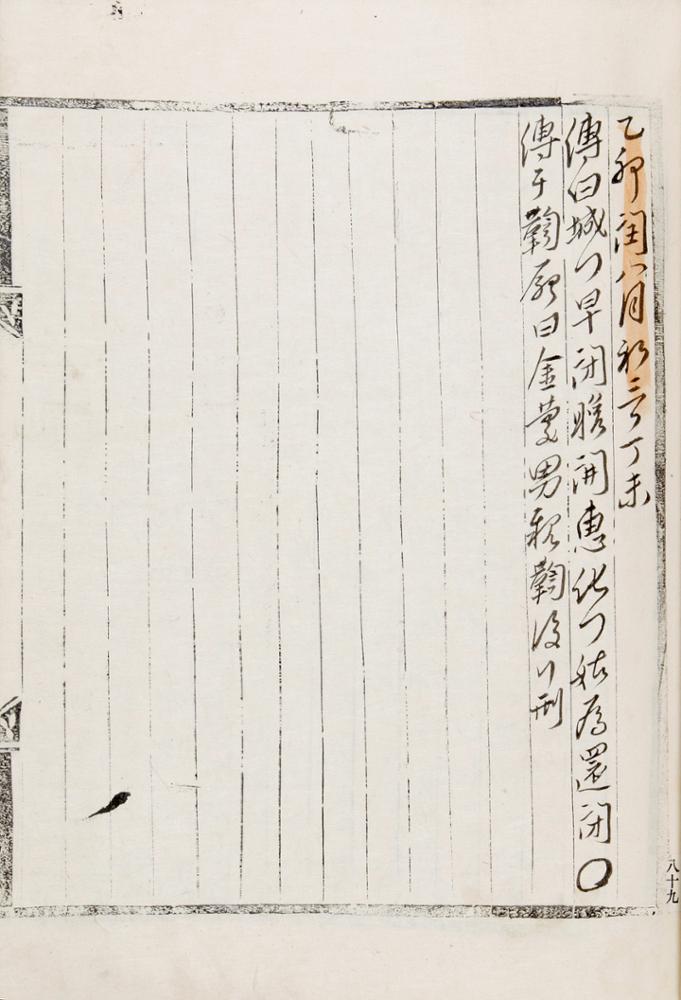 乙卯閏八月初三日丁未
傳曰城門早閉晩開惠化門姑爲還閉○
傳于鞫廳曰金夢男親鞫後行刑
八十九